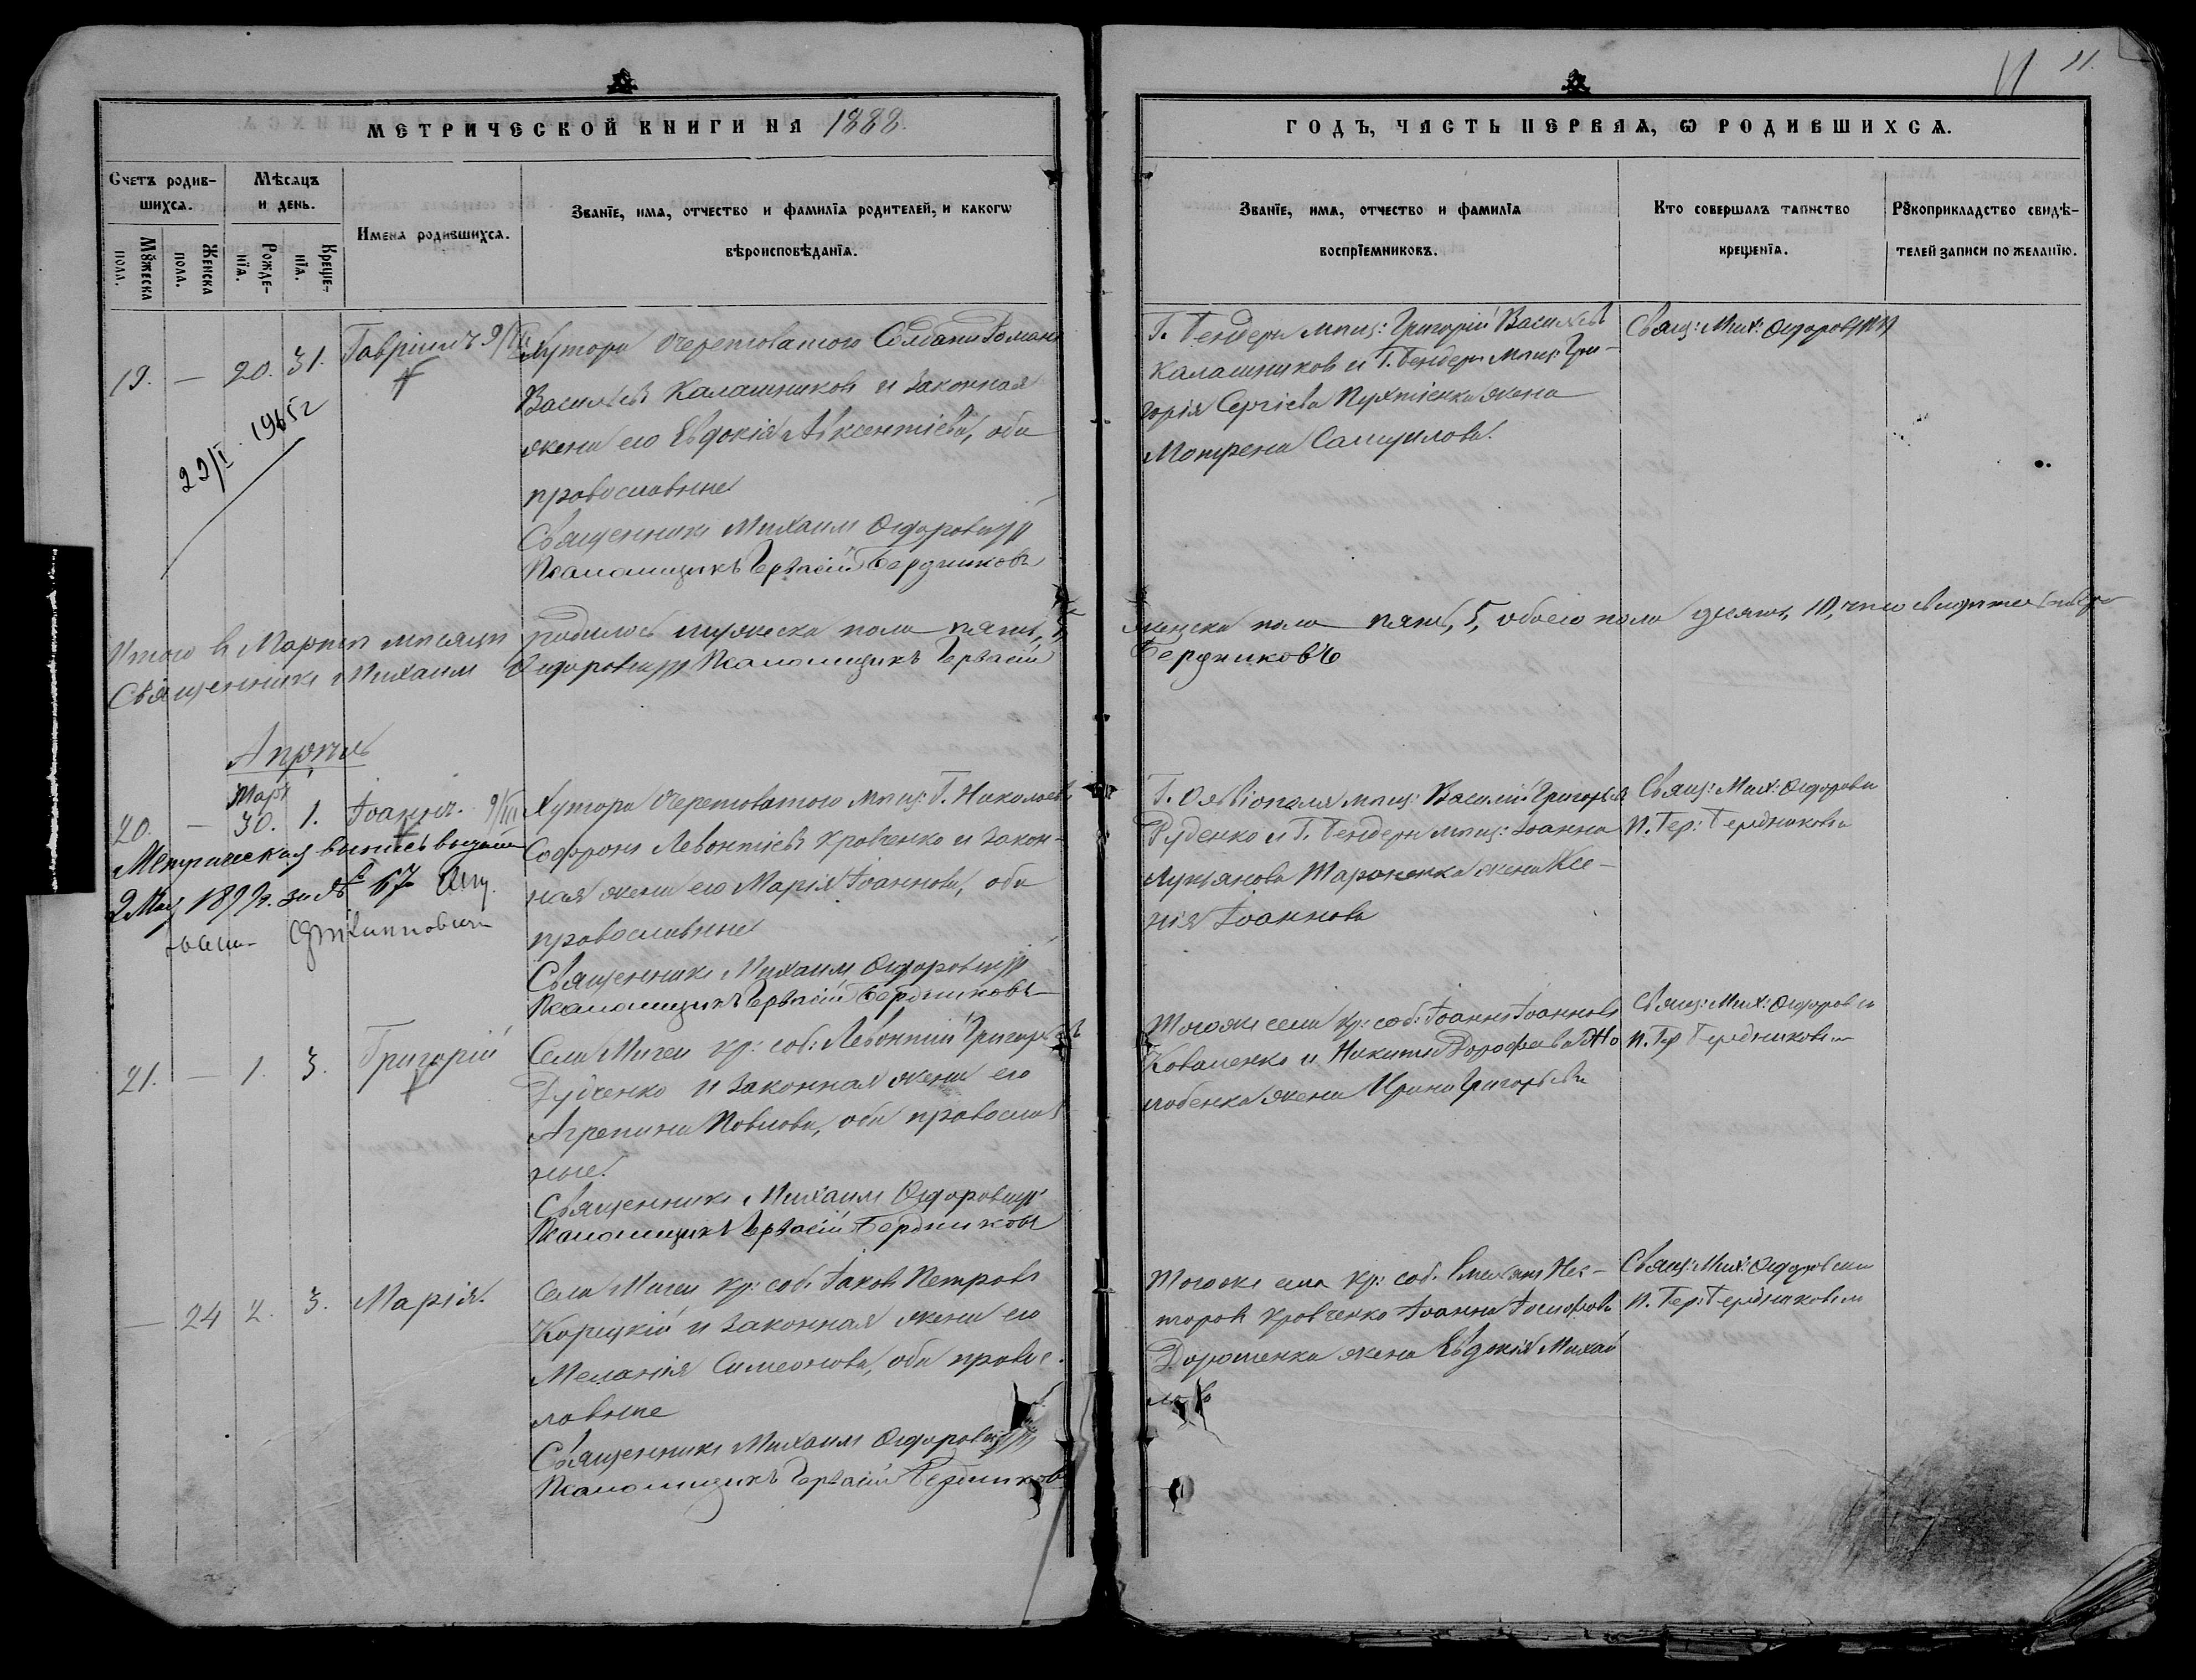 11 11.
МЕТРИЧЕСКОЙ КНИГИ НА 1888.
ГОДЪ, ЧАСТЬ ПЕРВАѦ, Ѡ РОДИВШИХСѦ.
Счетъ родив-
шихсѧ.
Мѣсѧцъ
и день.
Мꙋжеска
пола.
Женска
пола.
Рожде-
нїѧ.
Креще-
нїѧ.
Имена родившихсѧ.
Званїе, имѧ, отчество и фамилїѧ родителей, и какогѡ
вѣроисповѣданїѧ.
Званїе, имѧ, отчество и фамилїѧ
воспрїемниковъ.
Кто совершалъ таинство
крещенїѧ.
Рꙋкоприкладство свидѣ-
телей записи по желанїю.
19. — 20. 31. Гавріилъ
Хутора Очеретоватого Солдатъ Романъ
Васильевъ Калашниковъ и законная
жена его Евдокія Авксентіева, оба
православные
Священникъ Михаилъ Ѳедоровичъ
Псаломщикъ Гервасій Бердниковъ
22/I 1965 г
Г. Бендеръ мѣщ: Григорій Васильевъ
Калашниковъ и Г. Бендеръ мѣщ: Гри-
горія Сергіева жена
Мотрона Самуилова.
Свящ: Мих: Ѳедоровичъ
Итого въ Мартѣ мѣсяцѣ родилось мужеска пола пять, 5,
женска пола пять, 5, обоего пола десять, 10, что и свидѣтельствуемъ
Священникъ Михаилъ Ѳедоровичъ Псаломщикъ Гервасій
Бердниковъ
Апрѣль
Март
20. — 30. 1. Іоаннъ. 9/III
Хутора Очеретоватого мѣщ: Г. Николаева
Софронъ Левонтіевъ Кравченко и закон-
ная жена его Марія Іоаннова, оба
православные
Священникъ Михаилъ Ѳедоровичъ
Псаломщикъ Гервасій Бердниковъ
Метрическая выпись выдана
2 Мая за № 67
Г. Ольвіополя мѣщ: Василій Григорьевъ
Руденко и Г. Бендеръ мѣщ: Іоанна
Лукіянова жена Ксе-
нія Іоаннова
Свящ: Мих: Ѳедоровичъ
П. Гер: Бердниковъ
21. — 1. 3. Григорій
Села Мигеи кр: соб: Левонтій Григорьевъ
Дудченко и законная жена его
Агрепина Павлова, оба православ
ные.
Священникъ Михаилъ Ѳедоровичъ
Псаломщикъ Гервасій Бердниковъ
Тогоже села кр: соб: Іоаннъ Іоанновъ
Коваленко и Никиты Дорофеева
жена Ирина Григорьева
Свящ: Мих: Ѳедоровичъ
П. Гер Бердниковъ
— 24 2. 3. Марія.
Села Мигеи кр: соб: Іаковъ Петровъ
Корецкій и законная жена его
Меланія Симеонова, оба правос-
лавные
Священникъ Михаилъ Ѳедоровичъ
Псаломщикъ Гервасій Бердниковъ
Тогоже села кр: соб: Нес-
торовъ Кравченко Іоанна Іосифова
Дорошенка жена Евдокія Михай
лова
Свящ: Мих: Ѳедоровичъ
П. Гер: Бердниковъ